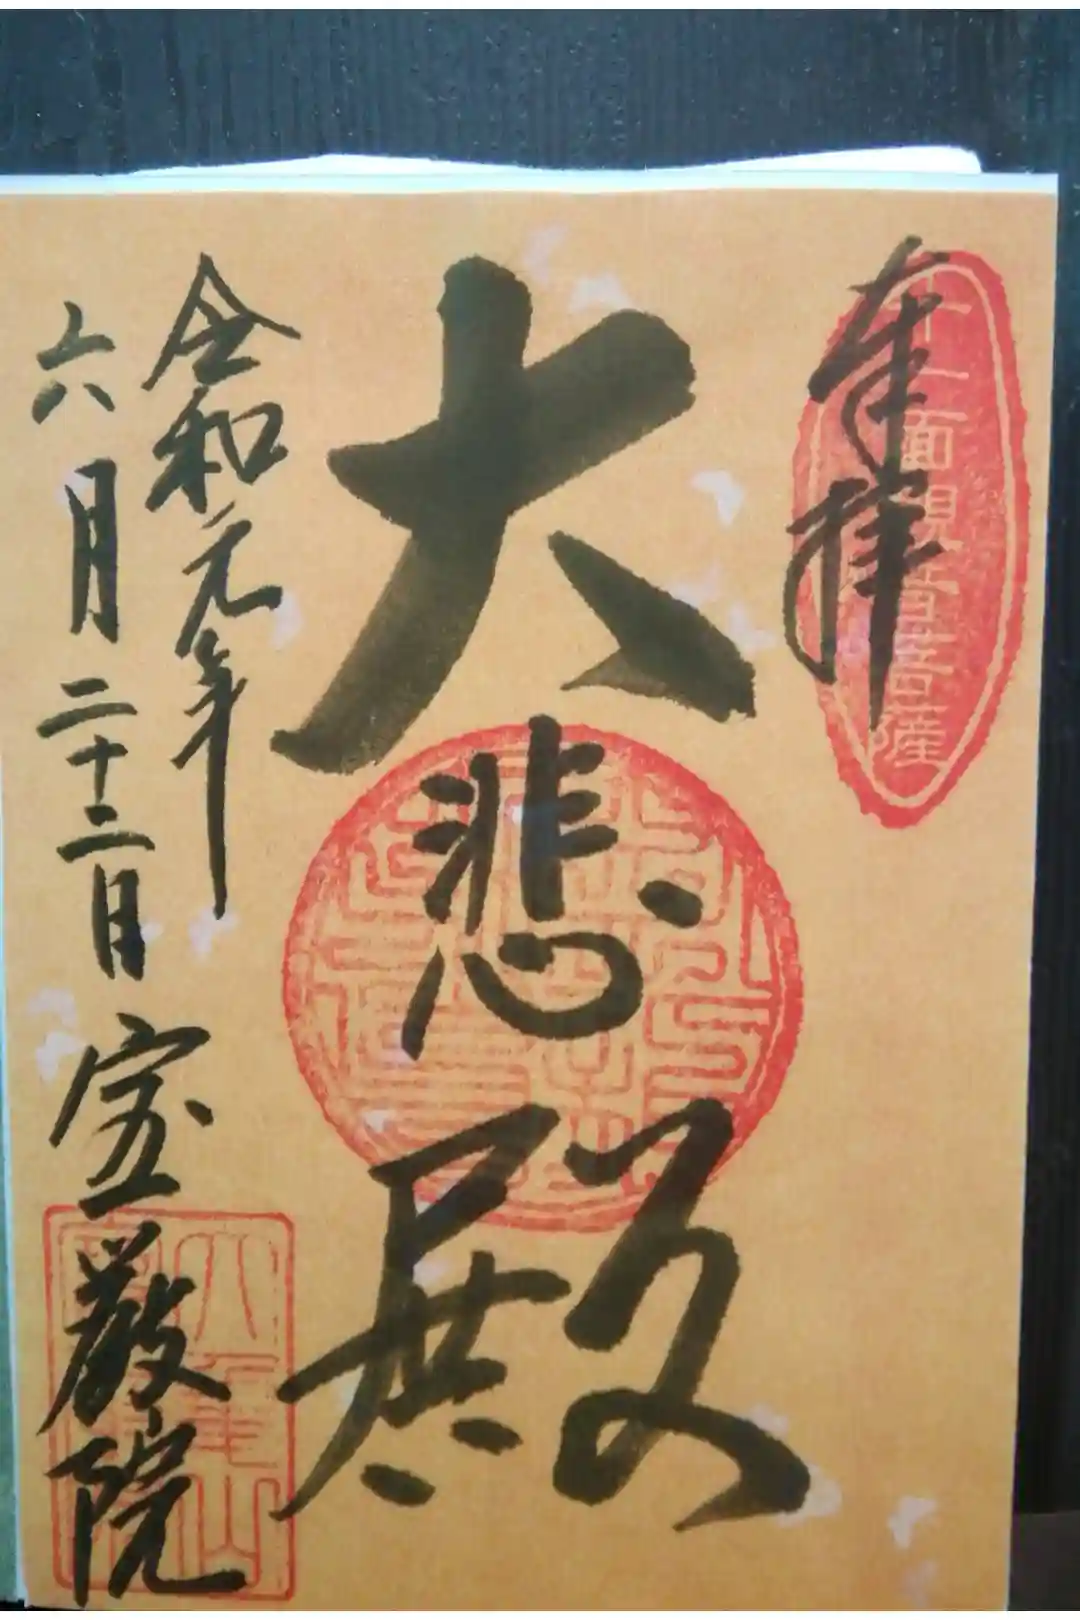 奉拝
十一面観音菩薩
大悲殿
令和元年
六月二十二日 宝厳院